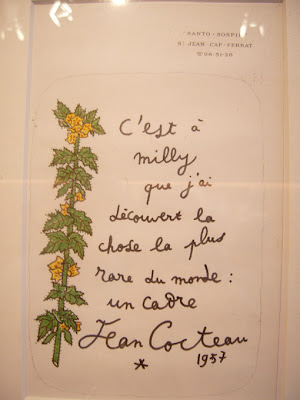 SANTO-SOSPIR
St JEAN CAP-FERRAT
C'est à
milly
que j'ai
découvert la
chose la plus
rare du monde :
un cadre
Jean Cocteau
* 1957